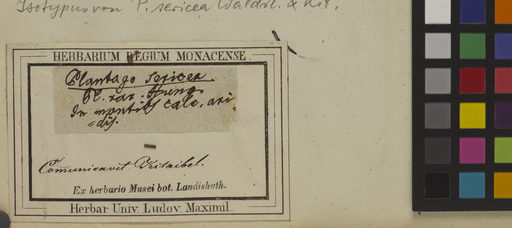 Isotypus von P. sericea Waldst. & Kit.
HERBARIUM REGIUM MONACENSE
Plantago sericea
Pl. rar. Hung.
In montib calc. ari
dis.
Comunicavit Kitaibel.
Ex herbario Musei bot. Landishuth.
Herbar. Univ. Ludov. Maximil.